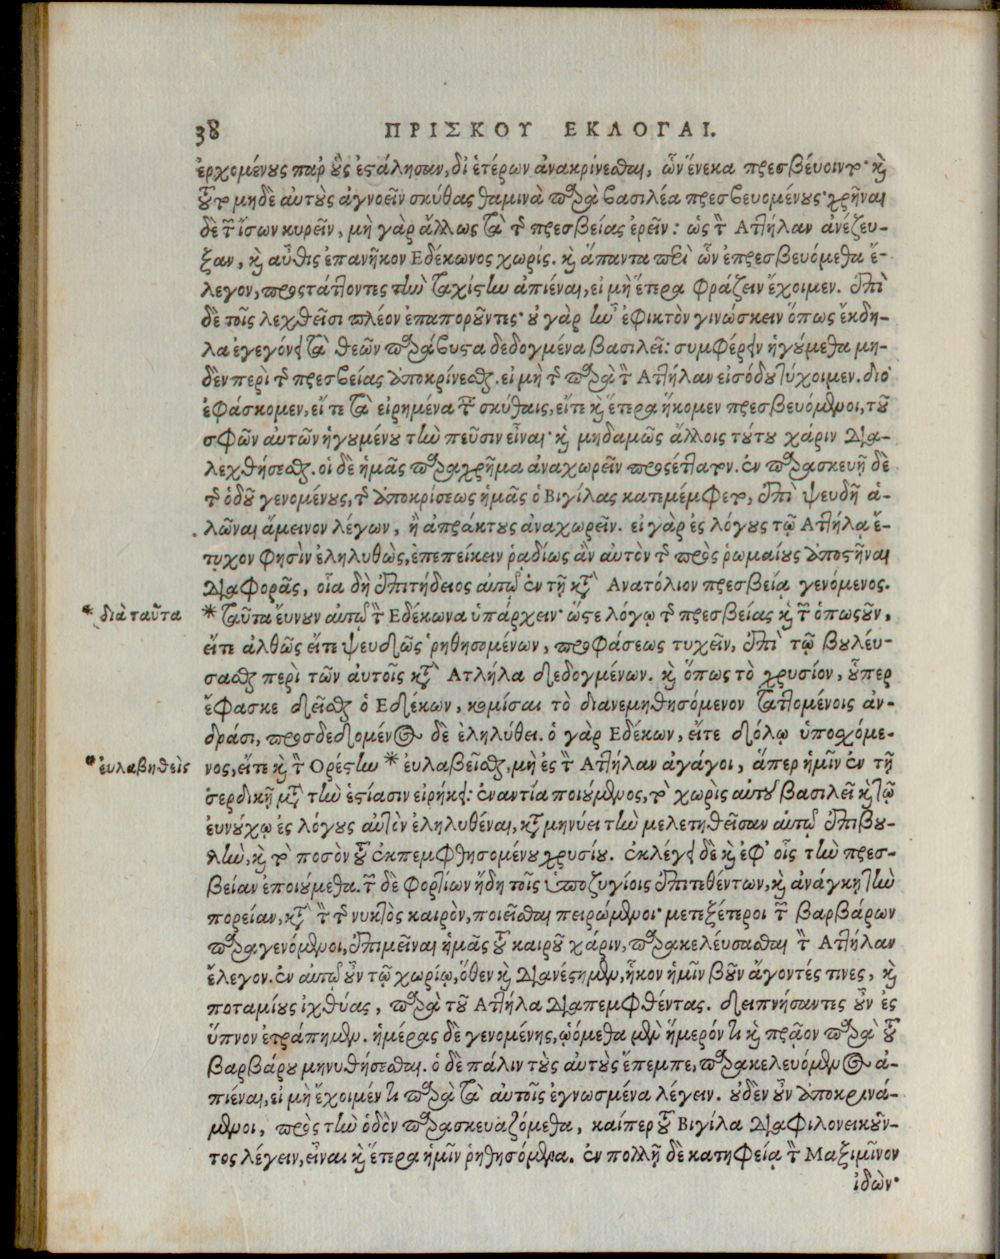 38 ΠΡΙΣΚΟΥ ΕΚΛΟΓΑΙ.
ἐρχομένους παρ' οὓς ἐστάλησαν, δι' ἑτέρων ἀνακρίνεσθαι, ὧν ἕνεκα πρεσβεύοιντο· καὶ
τοῦτο μηδὲ αὐτοὺς ἀγνοεῖν σκύθας θαμινὰ παρὰ βασιλέα πρεσβευομένους· χρῆναι
δὲ τῶν ἴσων κυρεῖν, μὴ γὰρ ἄλλως τὰ τῆς πρεσβείας ἐρεῖν: ὡς τὸν Ἀττήλαν ἀνέζευ-
ξαν, καὶ αὖθις ἐπανῆκον Εδέκωνος χωρίς. καὶ ἅπαντα περὶ ὧν ἐπρεσβευόμεθα ἔ-
λεγον, προστάττοντες τὴν ταχίστην ἀπιέναι, εἰ μὴ ἕτερα φράζειν ἔχοιμεν. ἐπὶ
δὲ τοῖς λεχθεῖσι πλέον ἐπαποροῦντες· οὐ γὰρ ἦν ἐφικτὸν γινώσκειν ὅπως ἔκδη-
λα ἐγεγόνει τὰ θεῶν παράβυστα δεδογμένα βασιλεῖ: συμφέρειν ἡγούμεθα μη-
δὲν περὶ τῆς πρεσβείας ἀποκρίνεσθαι. εἰ μὴ τῆς παρὰ τὸν Ἀττήλαν εἰσόδου τύχοιμεν. διὸ
ἐφάσκομεν, εἴ τε τὰ εἰρημένα τοῖς σκύθαις, εἴτε καὶ ἕτερα ἥκομεν πρεσβευόμενοι, τοῦ
σφῶν αὐτῶν ἡγουμένου τὴν πεῦσιν εἶναι· καὶ μηδαμῶς ἄλλοις τούτου χάριν δια-
λεχθήσεσθαι. οἱ δὲ ἡμᾶς παραχρῆμα ἀναχωρεῖν προσέταττον. ἐν παρασκευῇ δὲ
τῆς ὁδοῦ γενομένους, τῆς ἀποκρίσεως ἡμᾶς ὁ Βιγίλας κατεμέμφετο, ἐπὶ ψευδῆ ἁ-
λῶναι ἄμεινον λέγων, ἢ ἀπράκτους ἀναχωρεῖν. εἰ γὰρ ἐς λόγους τῷ Ἀττήλᾳ ἔ-
τυχον φησὶν ἐληλυθὼς, ἐπεπείκειν ῥᾳδίως ἂν αὐτὸν τῆς πρὸς ῥωμαίους ἀποστῆναι
διαφορᾶς, οἷα δὴ ἐπιτήδειος αὐτῷ ἐν τῇ κατὰ Ἀνατόλιον πρεσβείᾳ γενόμενος.
* διὰ ταῦτα
* ταῦτα ἔυνουν αὐτῷ τὸν Εδέκωνα ὑπάρχειν· ὥστε λόγῳ τῆς πρεσβείας καὶ τῶν ὁπωσοῦν,
εἴτε ἀλθῶς εἴτε ψευδῶς ῥηθησομένων, προφάσεως τυχεῖν, ἐπὶ τῷ βουλεύ-
σασθαι περὶ τῶν αὐτοῖς κατὰ Ατλήλα δεδογμένων. καὶ ὅπως τὸ χρυσίον, οὗπερ
ἔφασκε δεῖσθαι ὁ Εδέκων, κομίσαι τὸ διανεμηθησόμενον ταττομένοις ἀν-
δράσι, προσδεδομένος δὲ ἐληλύθει. ὁ γὰρ Εδέκων, εἴτε δόλῳ ὑποσχόμε-
* ἐυλαβηθεὶς
νος, εἴτε καὶ τὸν Ορέστην * ἐυλαβεῖσθαι, μὴ ἐς τὸν Ἀττήλαν ἀγάγοι, ἅπερ ἡμῖν ἐν τῇ
σερδικῇ μετὰ τὴν ἑστίασιν εἰρήκει: ἐναντία ποιούμενος, τὸ χωρὶς αὐτοῦ βασιλεῖ καὶ τῷ
ἐυνούχῳ ἐς λόγους αὐτὸν ἐληλυθέναι, καταμηνύει τὴν μελετηθεῖσαν αὐτῷ ἐπιβου-
λὴν, καὶ τὸ ποσὸν τοῦ ἐκπεμφθησομένου χρυσίου. ἐκλέγει δὲ καὶ ἐφ' οἷς τὴν πρεσ-
βείαν ἐποιούμεθα. τῶν δὲ φορτίων ἤδη τοῖς ὑποζυγίοις ἐπιτεθέντων, καὶ ἀνάγκῃ τὴν
πορείαν, κατὰ τὸν τῆς νυκτὸς καιρὸν, ποιεῖσθαι πειρώμενοι· μετεξέτεροι τῶν βαρβάρων
παραγενόμενοι, ἐπιμεῖναι ἡμᾶς τοῦ καιροῦ χάριν, παρακελεύσασθαι τὸν Ἀττήλαν
ἔλεγον. ἐν αὐτῷ οὖν τῷ χωρίῳ, ὅθεν καὶ διανέστημεν, ἧκον ἡμῖν βοῦν ἄγοντές τινες, καὶ
ποταμίους ἰχθύας, παρὰ τοῦ Ἀττήλα διαπεμφθέντας. δειπνήσαντες οὖν ἐς
ὕπνον ἐτράπημεν. ἡμέρας δὲ γενομένης, ᾠόμεθα μὲν ἥμερόν τι καὶ πρᾶον παρὰ τοῦ
βαρβάρου μηνυθήσεσθαι. ὁ δὲ πάλιν τοὺς αὐτοὺς ἔπεμπε, παρακελευόμενος ἀ-
πιέναι, εἰ μὴ ἔχοιμέν τι παρὰ τὰ αὐτοῖς ἐγνωσμένα λέγειν. οὐδὲν οὖν ἀποκρινά-
μενοι, πρὸς τὴν ὁδὸν παρασκευαζόμεθα, καίπερ τοῦ Βιγίλα διαφιλονεικοῦν-
τος λέγειν, εἶναι καὶ ἕτερα ἡμῖν ῥηθησόμενα. ἐν πολλῇ δὲ κατηφείᾳ τὸν Μαξιμῖνον
ἰδὼν·